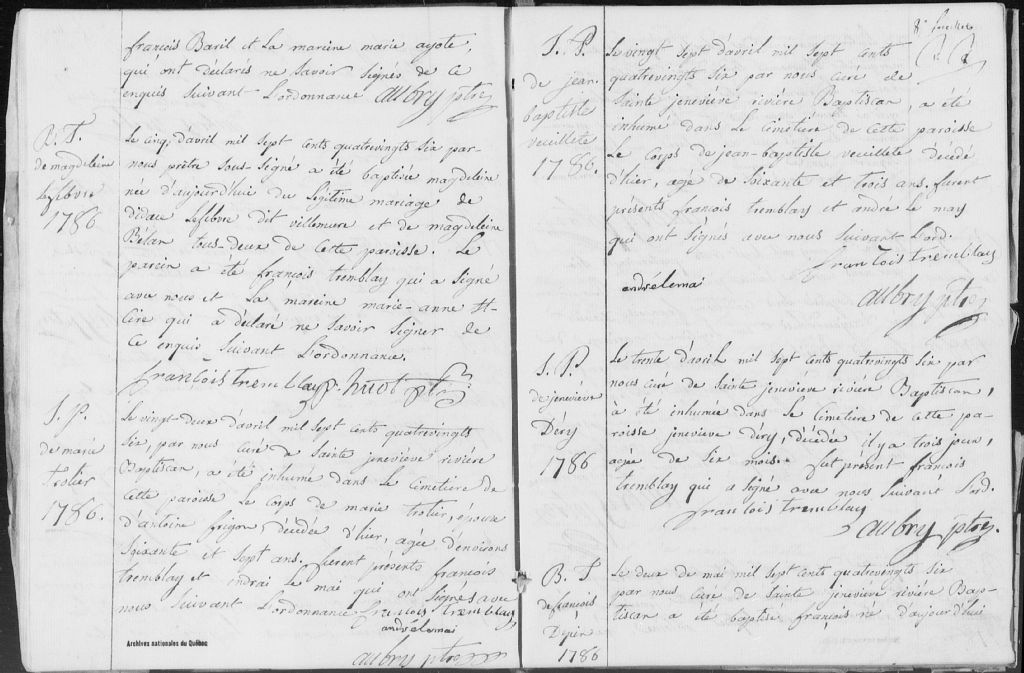 françois Baril et La mareine marie ayote,
qui ont déclarés ne savoir signés de ce
enquis suivant L'ordonnance aubry ptre
B. T.
de magdeleine
Lefebvre
1786
Le cinq d'avril mil sept cents quatrevingts six par-
nous prêtre sous-signé a été baptisée magdeleine
née d'aujourd'hui du Légitime mariage de
didace Lefebvre dit villemure et de magdeleine
Bélan tous-deux de cette paroisse. Le
parein a été françois tremblay qui a signé
avec nous et La mareine marie-anne St-
Cire qui a déclaré ne savoir signer de
ce enquis suivant L'ordonnance.
françois tremblay huot ptre
S. P.
de marie
Trotier
1786.
Le vingt-deux d'avril mil sept cents quatrevingts
six, par nous curé de sainte jeneviève rivière
Baptiscan, a été inhumé dans le cimetière de
cette paroisse Le corps de marie trotier, épouse
d'antoine frigon, décédée d'hier, agée d'environs
soixante et sept ans. furent présents françois
tremblay et endrai le mai qui ont signés avec
nous suivant L'ordonnance françois tremblay
andrélemai
aubry ptre
Archives nationales du Québec
8e feuillet
S. P.
de jean-
baptiste
veuillete
1786.
Le vingt sept d'avril mil sept cents
quatrevingts six par nous curé de
sainte jeneviève rivière Baptiscan, a été
inhumé dans Le cimetière de cette paroisse
Le corps de jean-baptiste veuillete décédé
d'hier, agé de soixante et trois ans, furent
présents françois tremblay et andré le may
qui ont signés avec nous suivant L'ord.
françois tremblay
andrélemai
aubry ptre
S. P.
de jeneviève
Déry
1786
Le trente d'avril mil sept cents quatrevingts six par
nous curé de sainte jeneviève rivière Baptiscan,
à été inhumée dans Le cimetière de cette pa-
roisse jeneviève déry, décédée il y a trois jours,
agée de six mois. fut présent françois
tremblay qui a signé avec nous suivant L'ord.
françois tremblay
aubry ptre.
B. T.
de françois
1786
Le deux de mai mil sept cents quatrevingts six
par nous curé de sainte jeneviève rivière Bap-
tiscan a été baptisé françois né d'aujourd'hui